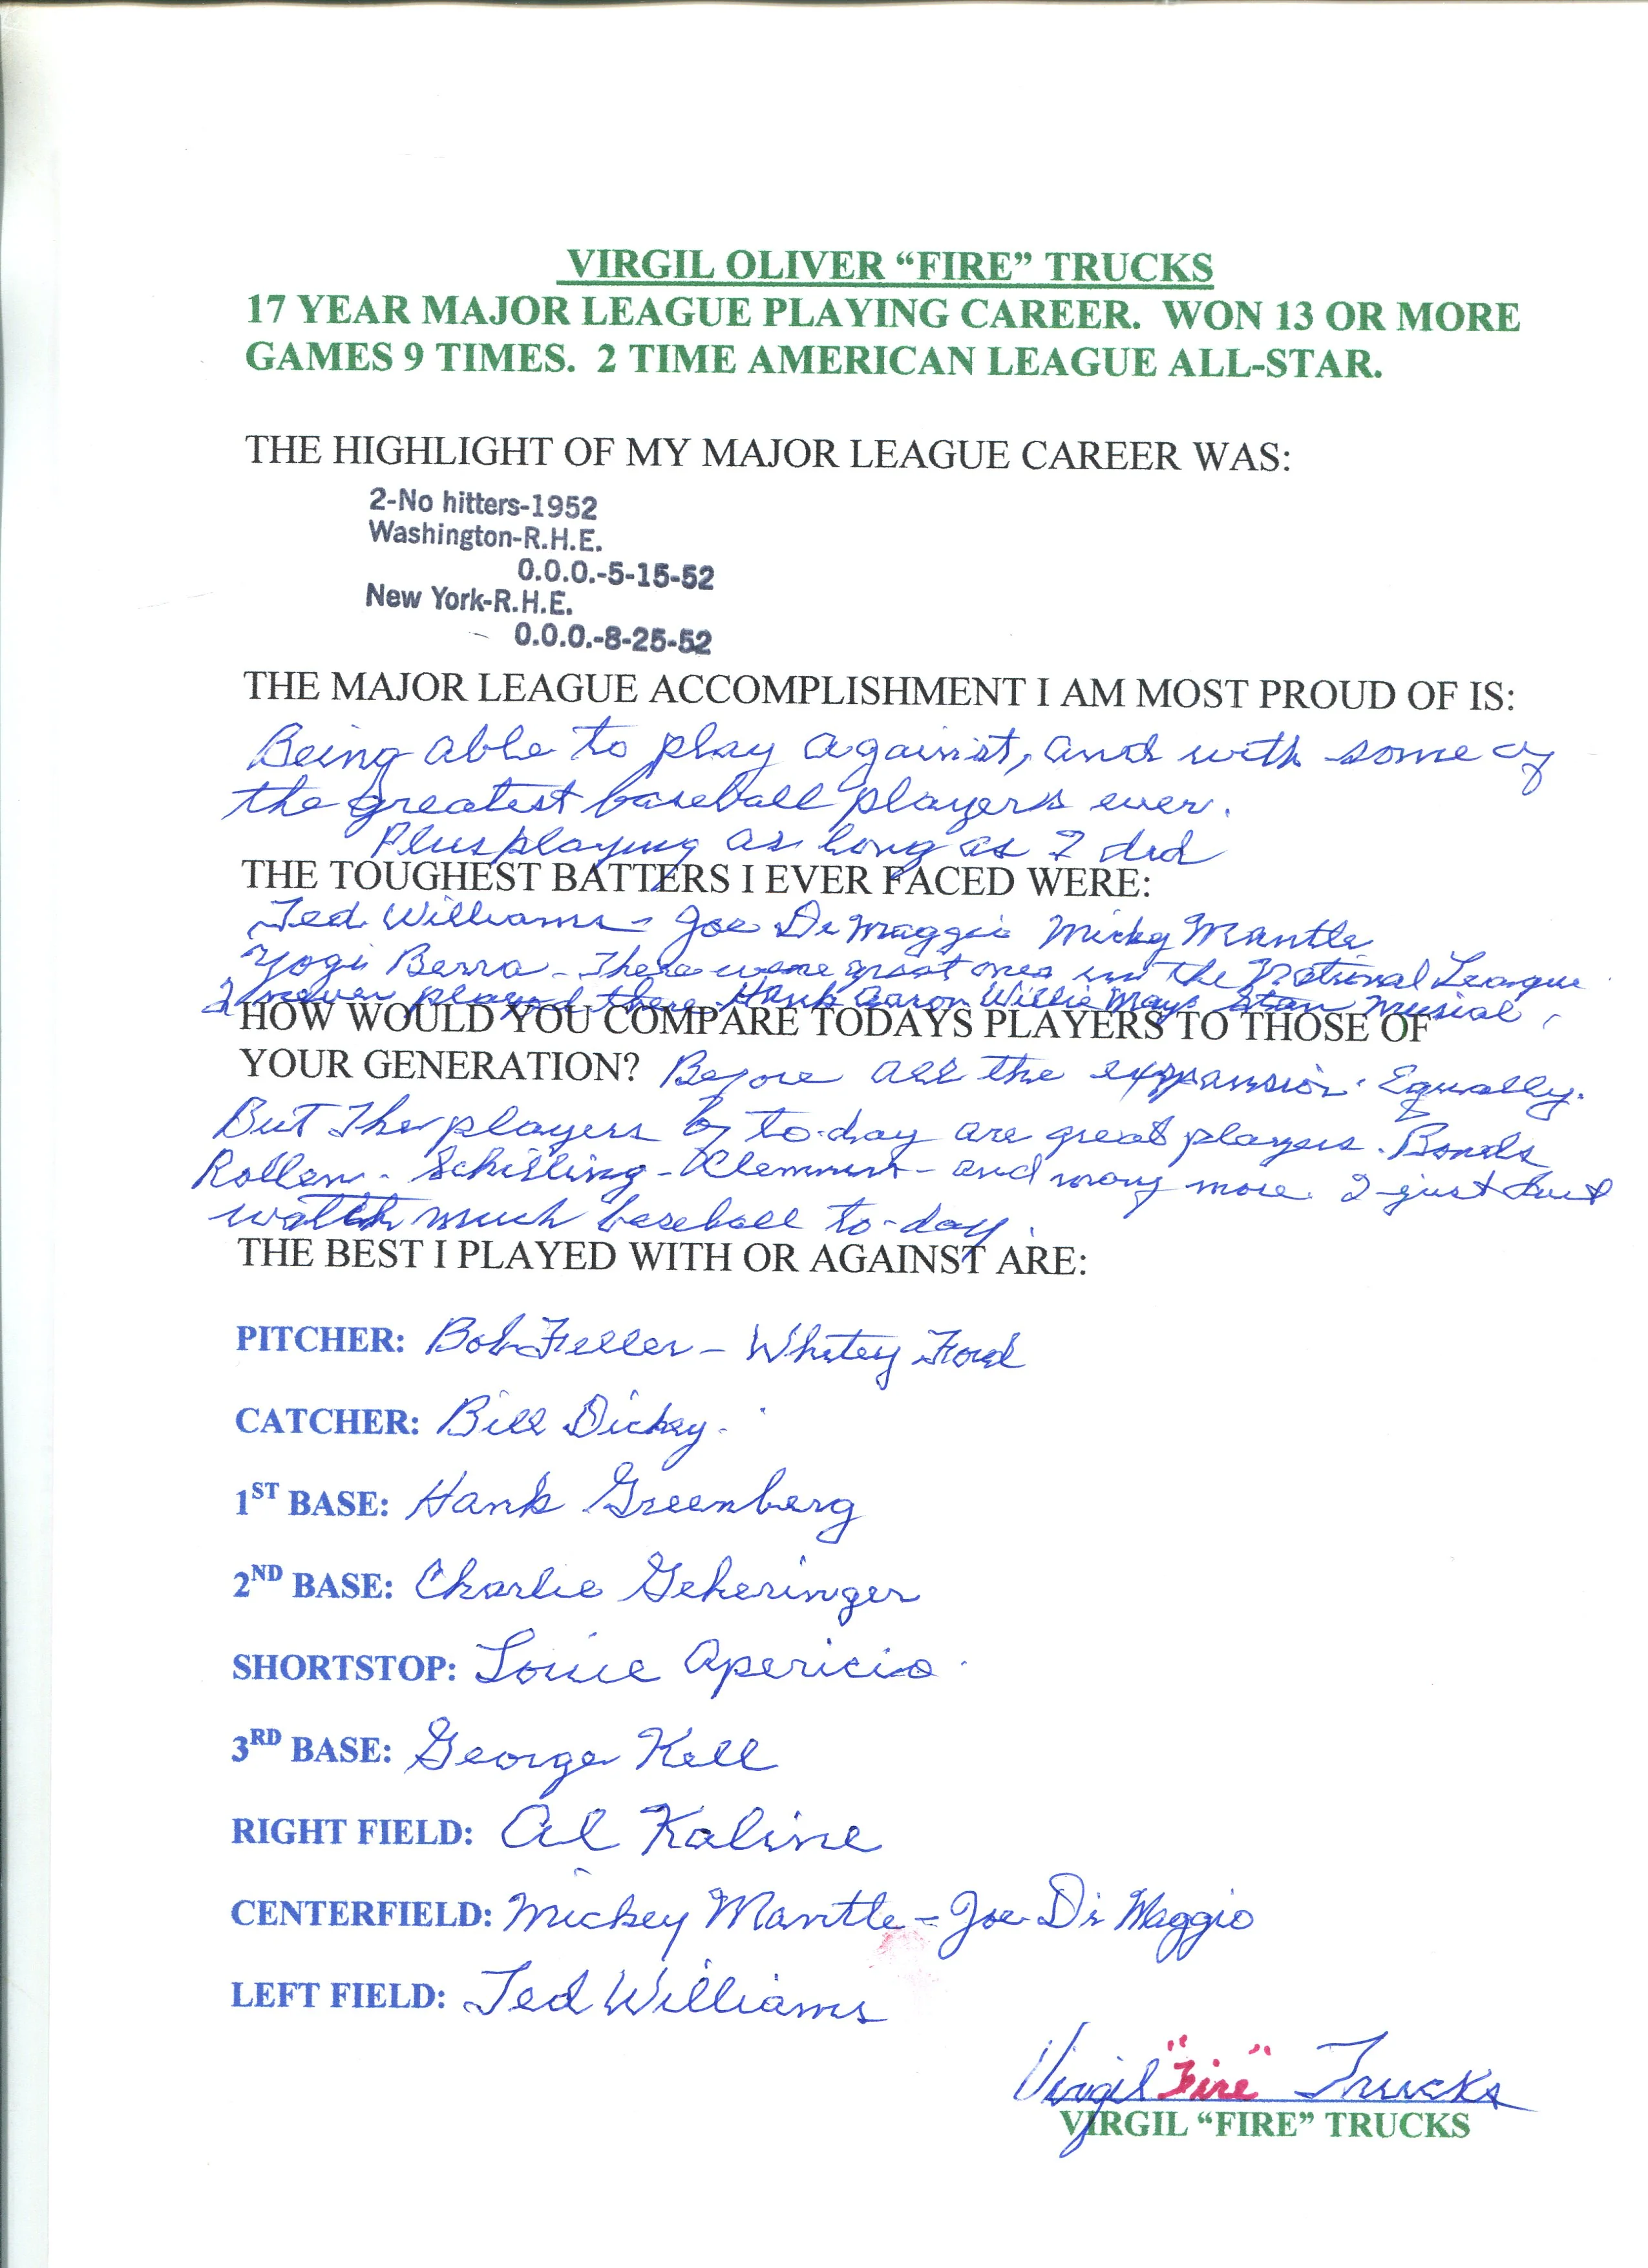 VIRGIL OLIVER “FIRE” TRUCKS
17 YEAR MAJOR LEAGUE PLAYING CAREER. WON 13 OR MORE
GAMES 9 TIMES. 2 TIME AMERICAN LEAGUE ALL-STAR.
THE HIGHLIGHT OF MY MAJOR LEAGUE CAREER WAS:
2-No hitters-1952
Washington-R.H.E.
0.0.0.-5-15-52
New York-R.H.E.
0.0.0.-8-25-52
THE MAJOR LEAGUE ACCOMPLISHMENT I AM MOST PROUD OF IS:
Being able to play against, and with some of
the greatest baseball players ever.
Plus playing as long as I did
THE TOUGHEST BATTERS I EVER FACED WERE:
Ted Williams - Joe DiMaggio Micky Mantle
Yogi Berra - There were great ones in the National League
I never played there. Hank Aaron Willie Mays Stan Musial.
HOW WOULD YOU COMPARE TODAYS PLAYERS TO THOSE OF
YOUR GENERATION? Before all the exppansion. Equally.
But The players of to-day are great players. Bonds
Rollen - Schilling - Klemmins - and many more. I just dont
watch much baseball to-day.
THE BEST I PLAYED WITH OR AGAINST ARE:
PITCHER: Bob Feller - Whitey Ford
CATCHER: Bill Dickey.
1ST BASE: Hank Greenberg
2ND BASE: Charlie Geheringer
SHORTSTOP: Louie Apericio
3RD BASE: George Kell
RIGHT FIELD: Al Kaline
CENTERFIELD: Mickey Mantle - Joe Di Maggio
LEFT FIELD: Ted Williams
Virgil "Fire" Trucks
VIRGIL “FIRE” TRUCKS